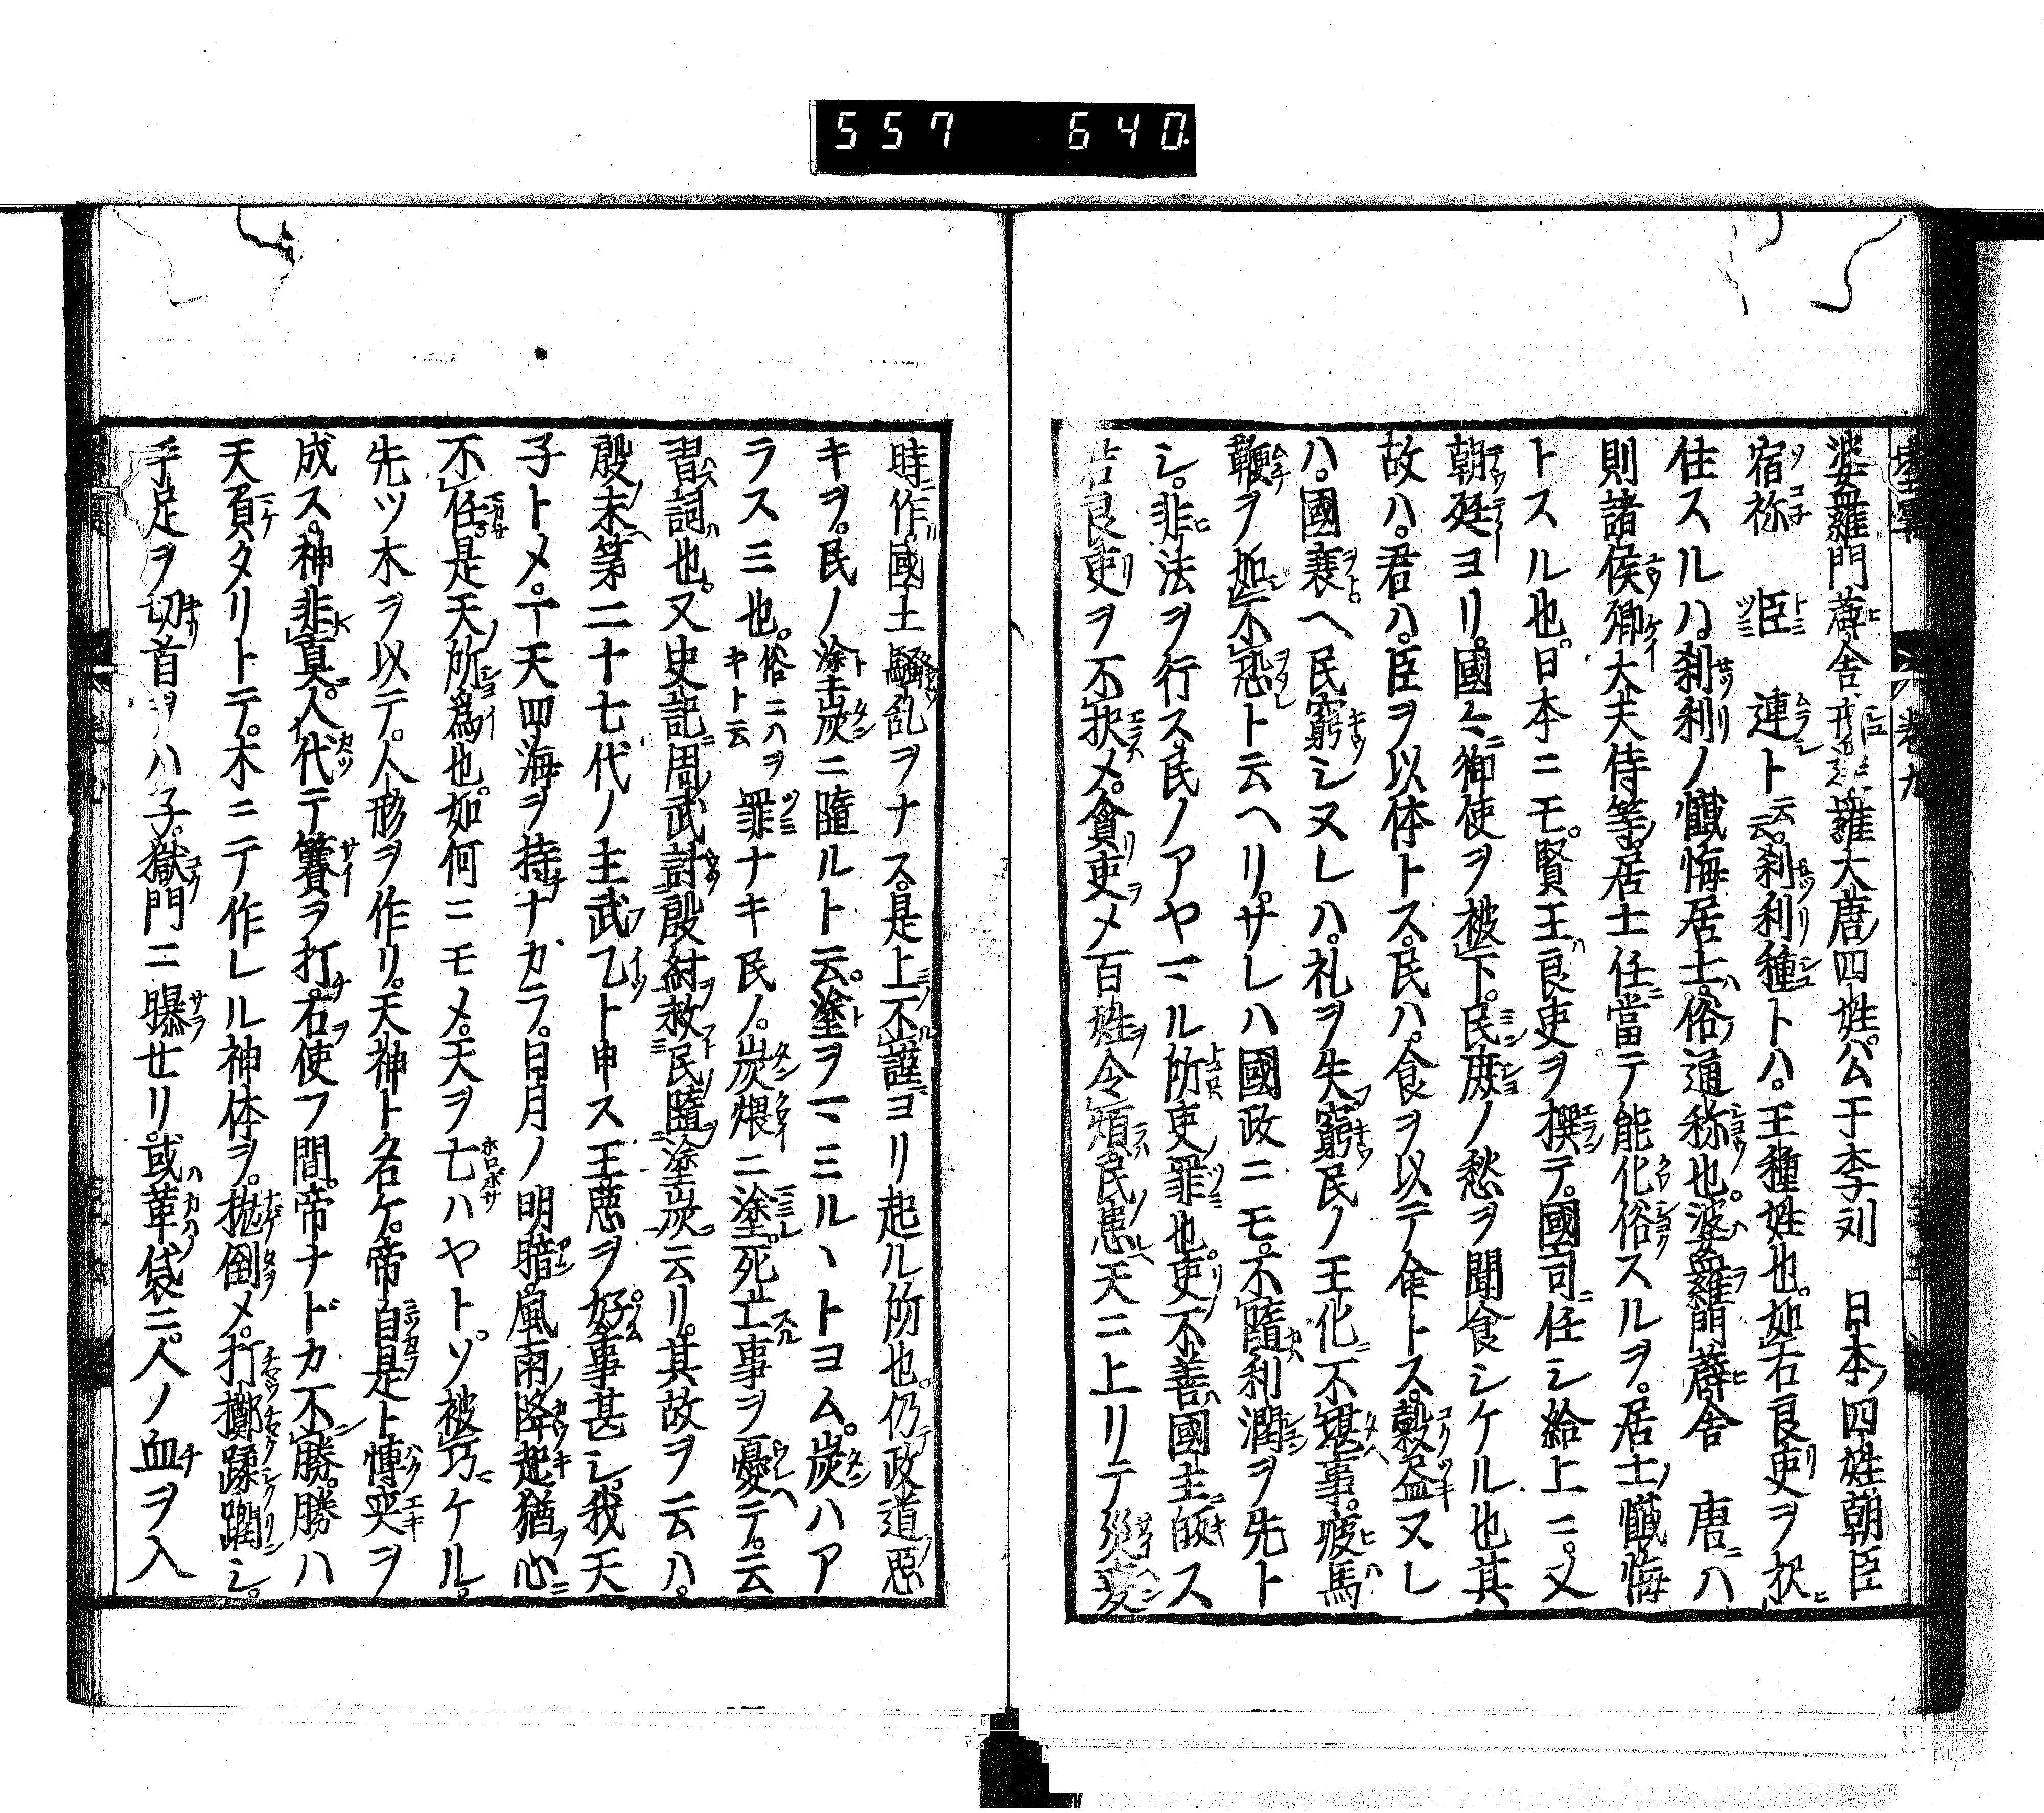 557 640
婆羅門薜舎戌達羅大唐ノ四姓ハ厶于李刘 日本ノ四姓朝臣
宿祢 臣 連ト云云。刹利種トハ。王種姓也。如右良吏ヲ択
住スルハ。刹利ノ懺悔居士ハ。俗ノ通称也。婆羅門薜舎 唐ニハ
則諸侯卿大夫侍等。居士任ニ當テ能化俗スルヲ。居士ノ懺悔
トスル也。日本ニモ。賢王ハ良吏ヲ撰テ。國司ニ任シ給上ニ。又
朝廷ヨリ。國々ニ御使ヲ被下。民庶ノ愁ヲ聞食シケル也其
故ハ。君ハ。臣ヲ以体トス。民ハ。食ヲ以テ命トス。穀益ヌレ
ハ。國衰ヘ民窮シヌレハ。礼ヲ失フ。窮民ノ王化ニ不堪事。疲馬
鞭ヲ如不恐ト云ヘリ。サレハ國政ニモ。不隨利潤ヲ先ト
シ。非法ヲ行ス。民ノアヤマル所吏ノ罪也。吏ノ不善ハ國主ニ皈ス
若良吏ヲ不択メ。貪吏ヲメ百姓ヲ令煩ハ民ノ患ヘ天ニ上リテ災変
時ニ作リ。國土騒乱ヲナス。是上ノ不謹ヨリ起ル所也。仍テ政道ノ悪
キヲ。民ノ塗炭ニ隨ルトハ云。塗ヲマミルヽトヨム。炭ハア
ラスミ也。俗ニハヲキト云 罪ナキ民ノ。炭煨ニ塗レ。死亡スル事ヲ憂テ。云
習ハス詞ハ也。又史記ニ周ノ武討殷紂ヲ救フト民ノ隨ヲ塗炭ニ云リ。其故ヲ云ハ。
殷ノ末ヘ第二十七代ノ主武乙ト申ス王悪ヲ好ム事甚シ。我天
子トメ。一天四海ヲ持ナカラ。日月ノ明暗風雨ノ降起猶心ニ
不任是天ノ所為也。如何ニモメ。天ヲ亡ハヤトソ被巧ケル。
先ツ木ヲ以テ。人形ヲ作リ。天神ト名ケ。帝自是ト博奕ヲ
成ス。神非真。人代テ簺ヲ打。右ヲ使フ間。帝ナドカ不勝。勝ハ
天負タリトテ。木ニテ作レル神体ヲ。抛倒メ。打擲蹂躙シ。
手足ヲ切首ヲハ子。獄門ニ曝サラ廿リ。或ハ革ノ袋ニ。人ノ血ヲ入